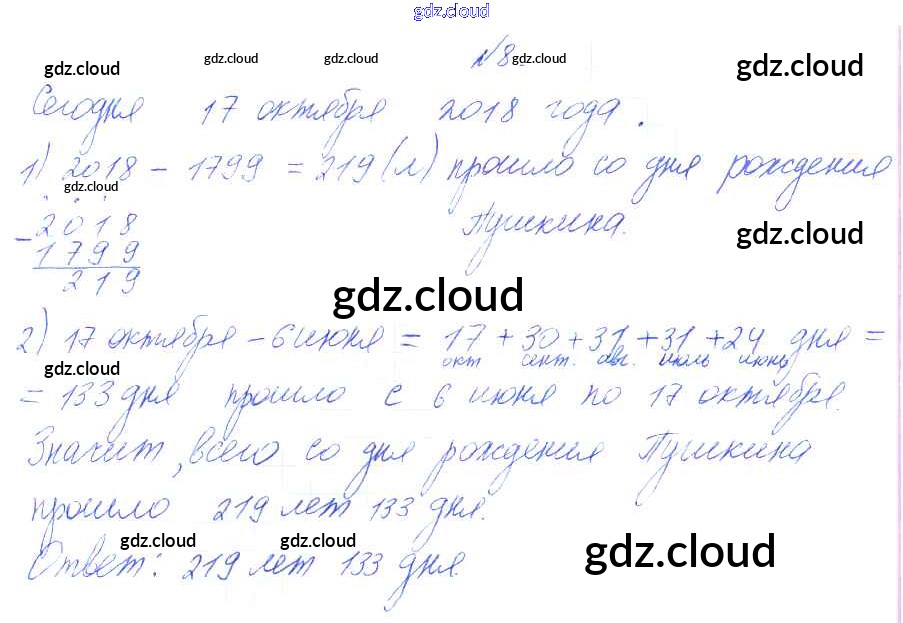 gdz.cloud
№8.
gdz.cloud gdz.cloud gdz.cloud gdz.cloud gdz.cloud
Сегодня 17 октября 2018 года.
1) 2018 - 1799 = 219 (л) прошло со дня рождения
gdz.cloud
- 2018 Пушкина.
gdz.cloud
1799
219
gdz.cloud
2) 17 октября - 6 июня = 17 + 30 + 31 + 31 + 24 дня =
окт сент. ав. июль июнь
gdz.cloud
= 133 дня прошло с 6 июня по 17 октября.
Значит, всего со дня рождения Пушкина
прошло 219 лет 133 дня.
gdz.cloud gdz.cloud gdz.cloud
Ответ: 219 лет 133 дня.